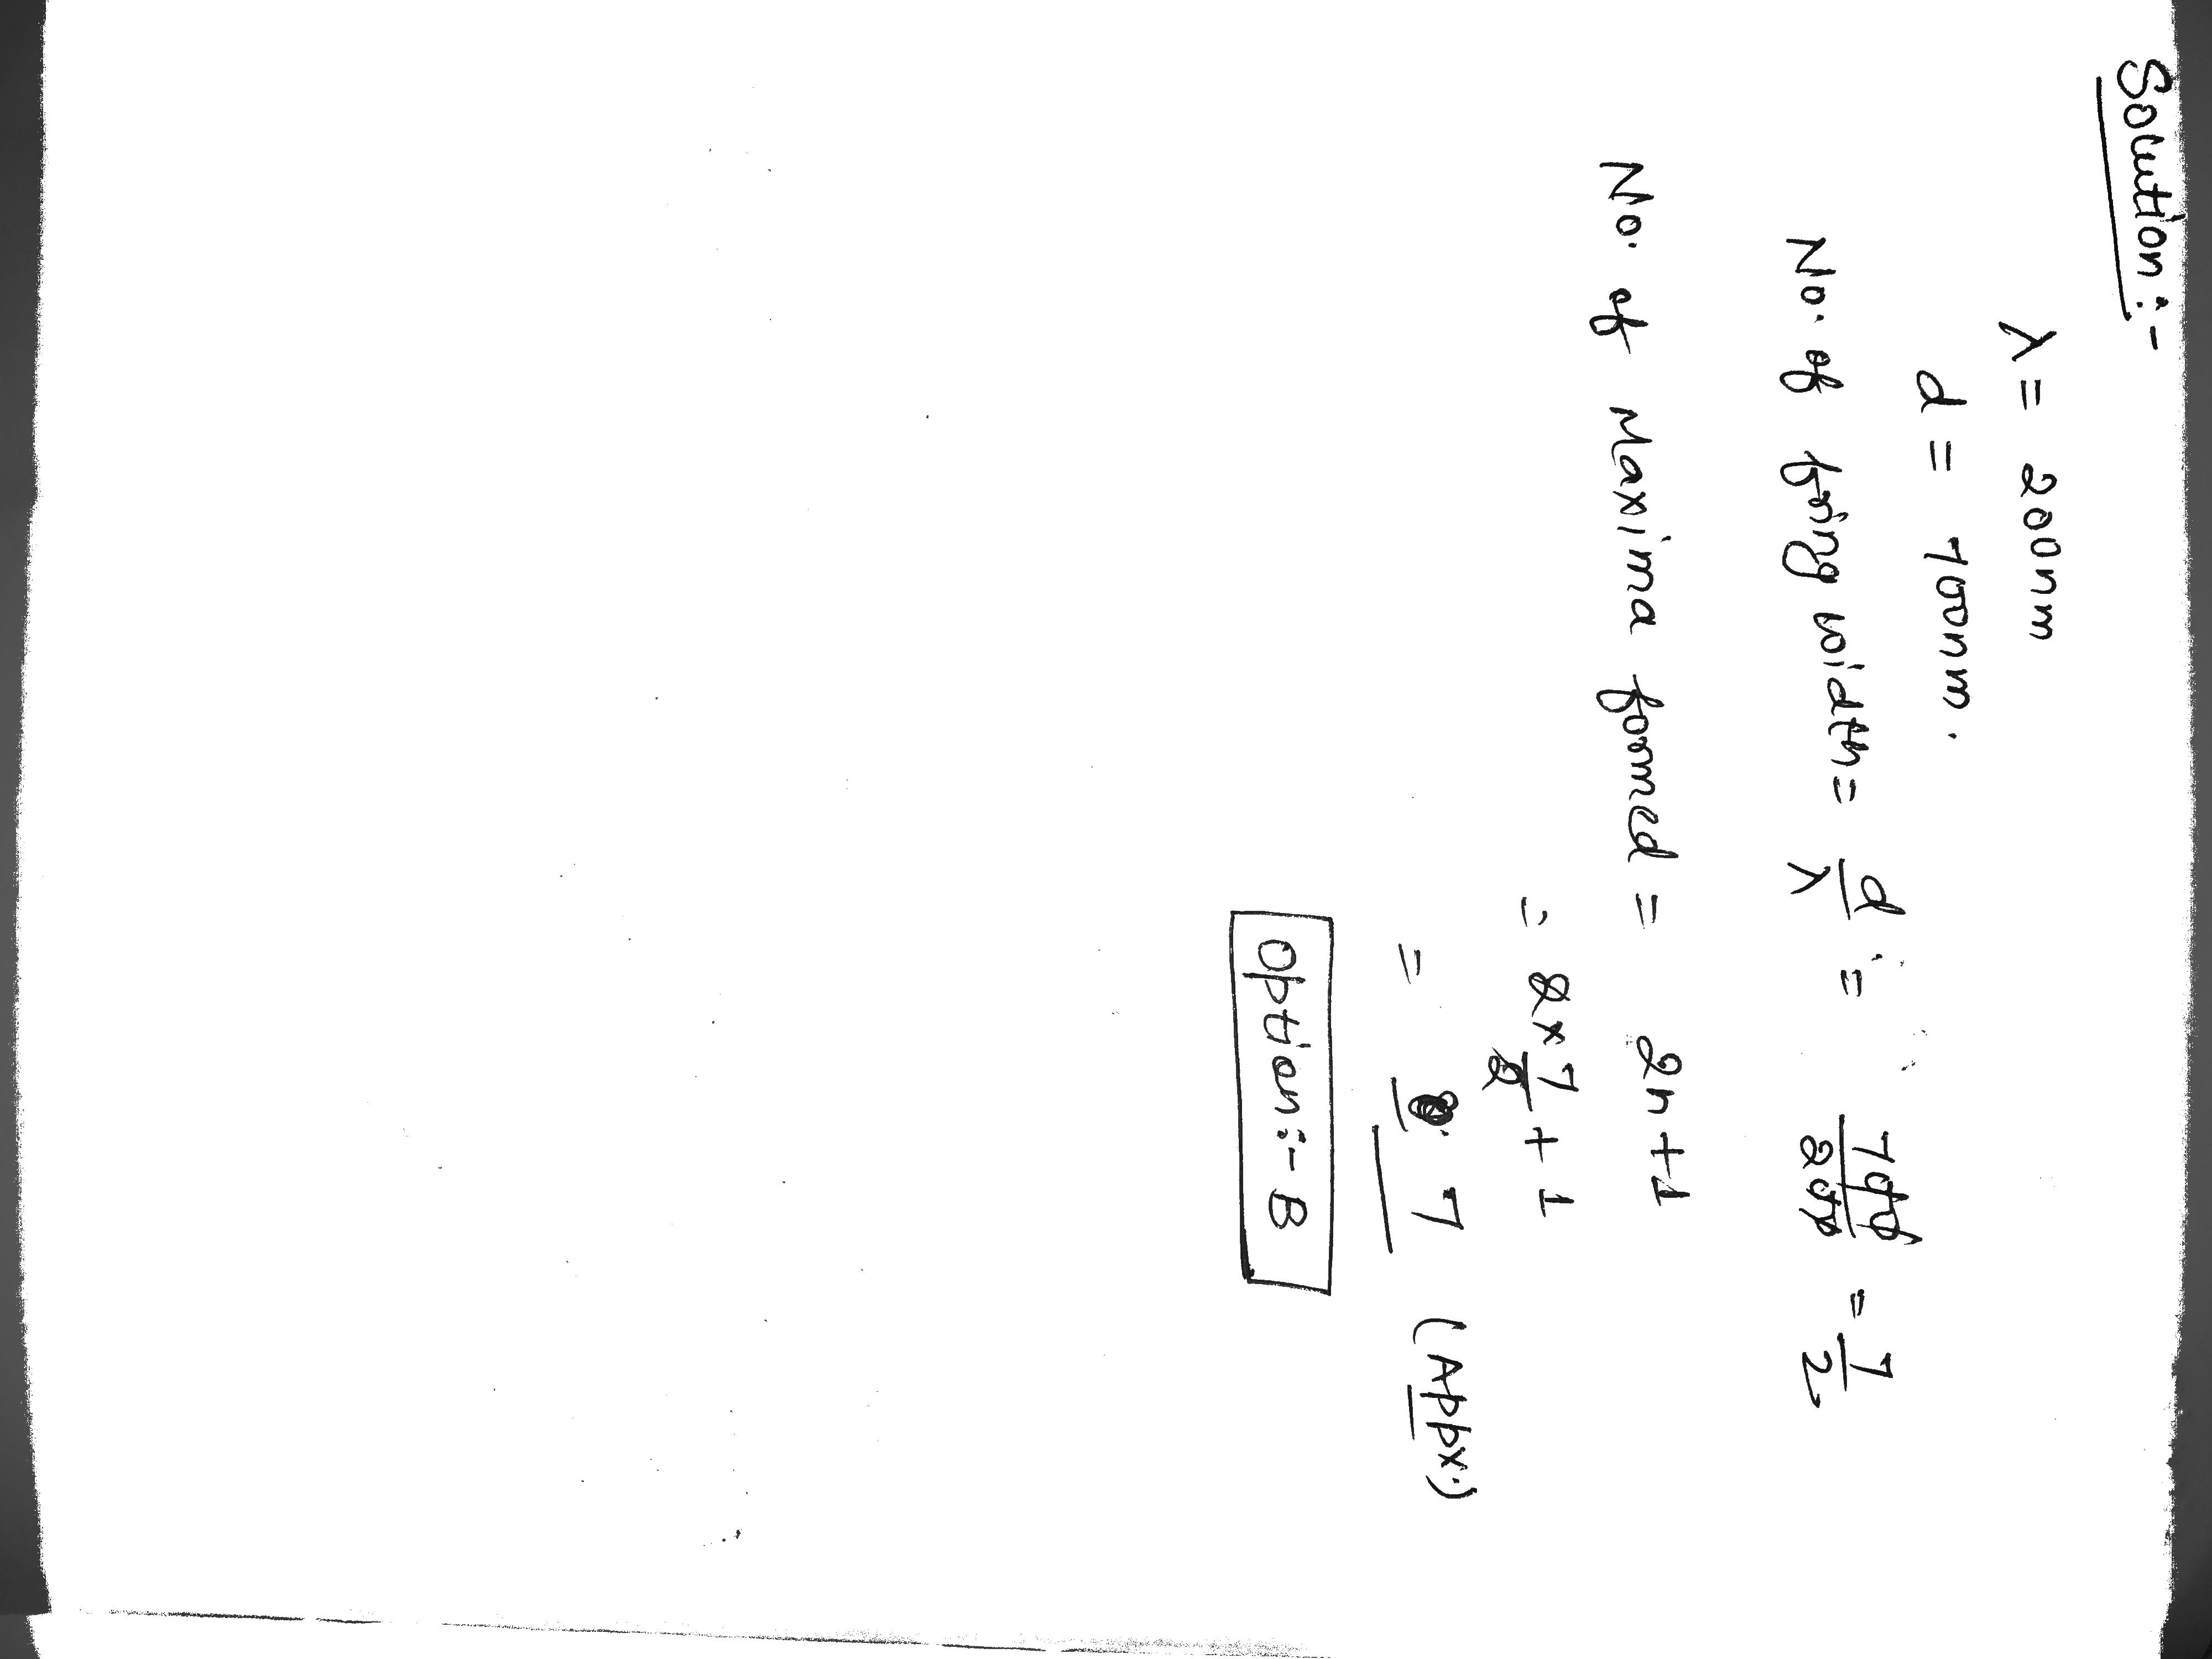 Solution :-
λ = 200nm
d = 700nm.
No. of fring width = d/λ = 700/200 = 7/2
No. of Maxima formed = 2n+1
= 2×7/2+1
= 7 (Appx.)
Option:- B